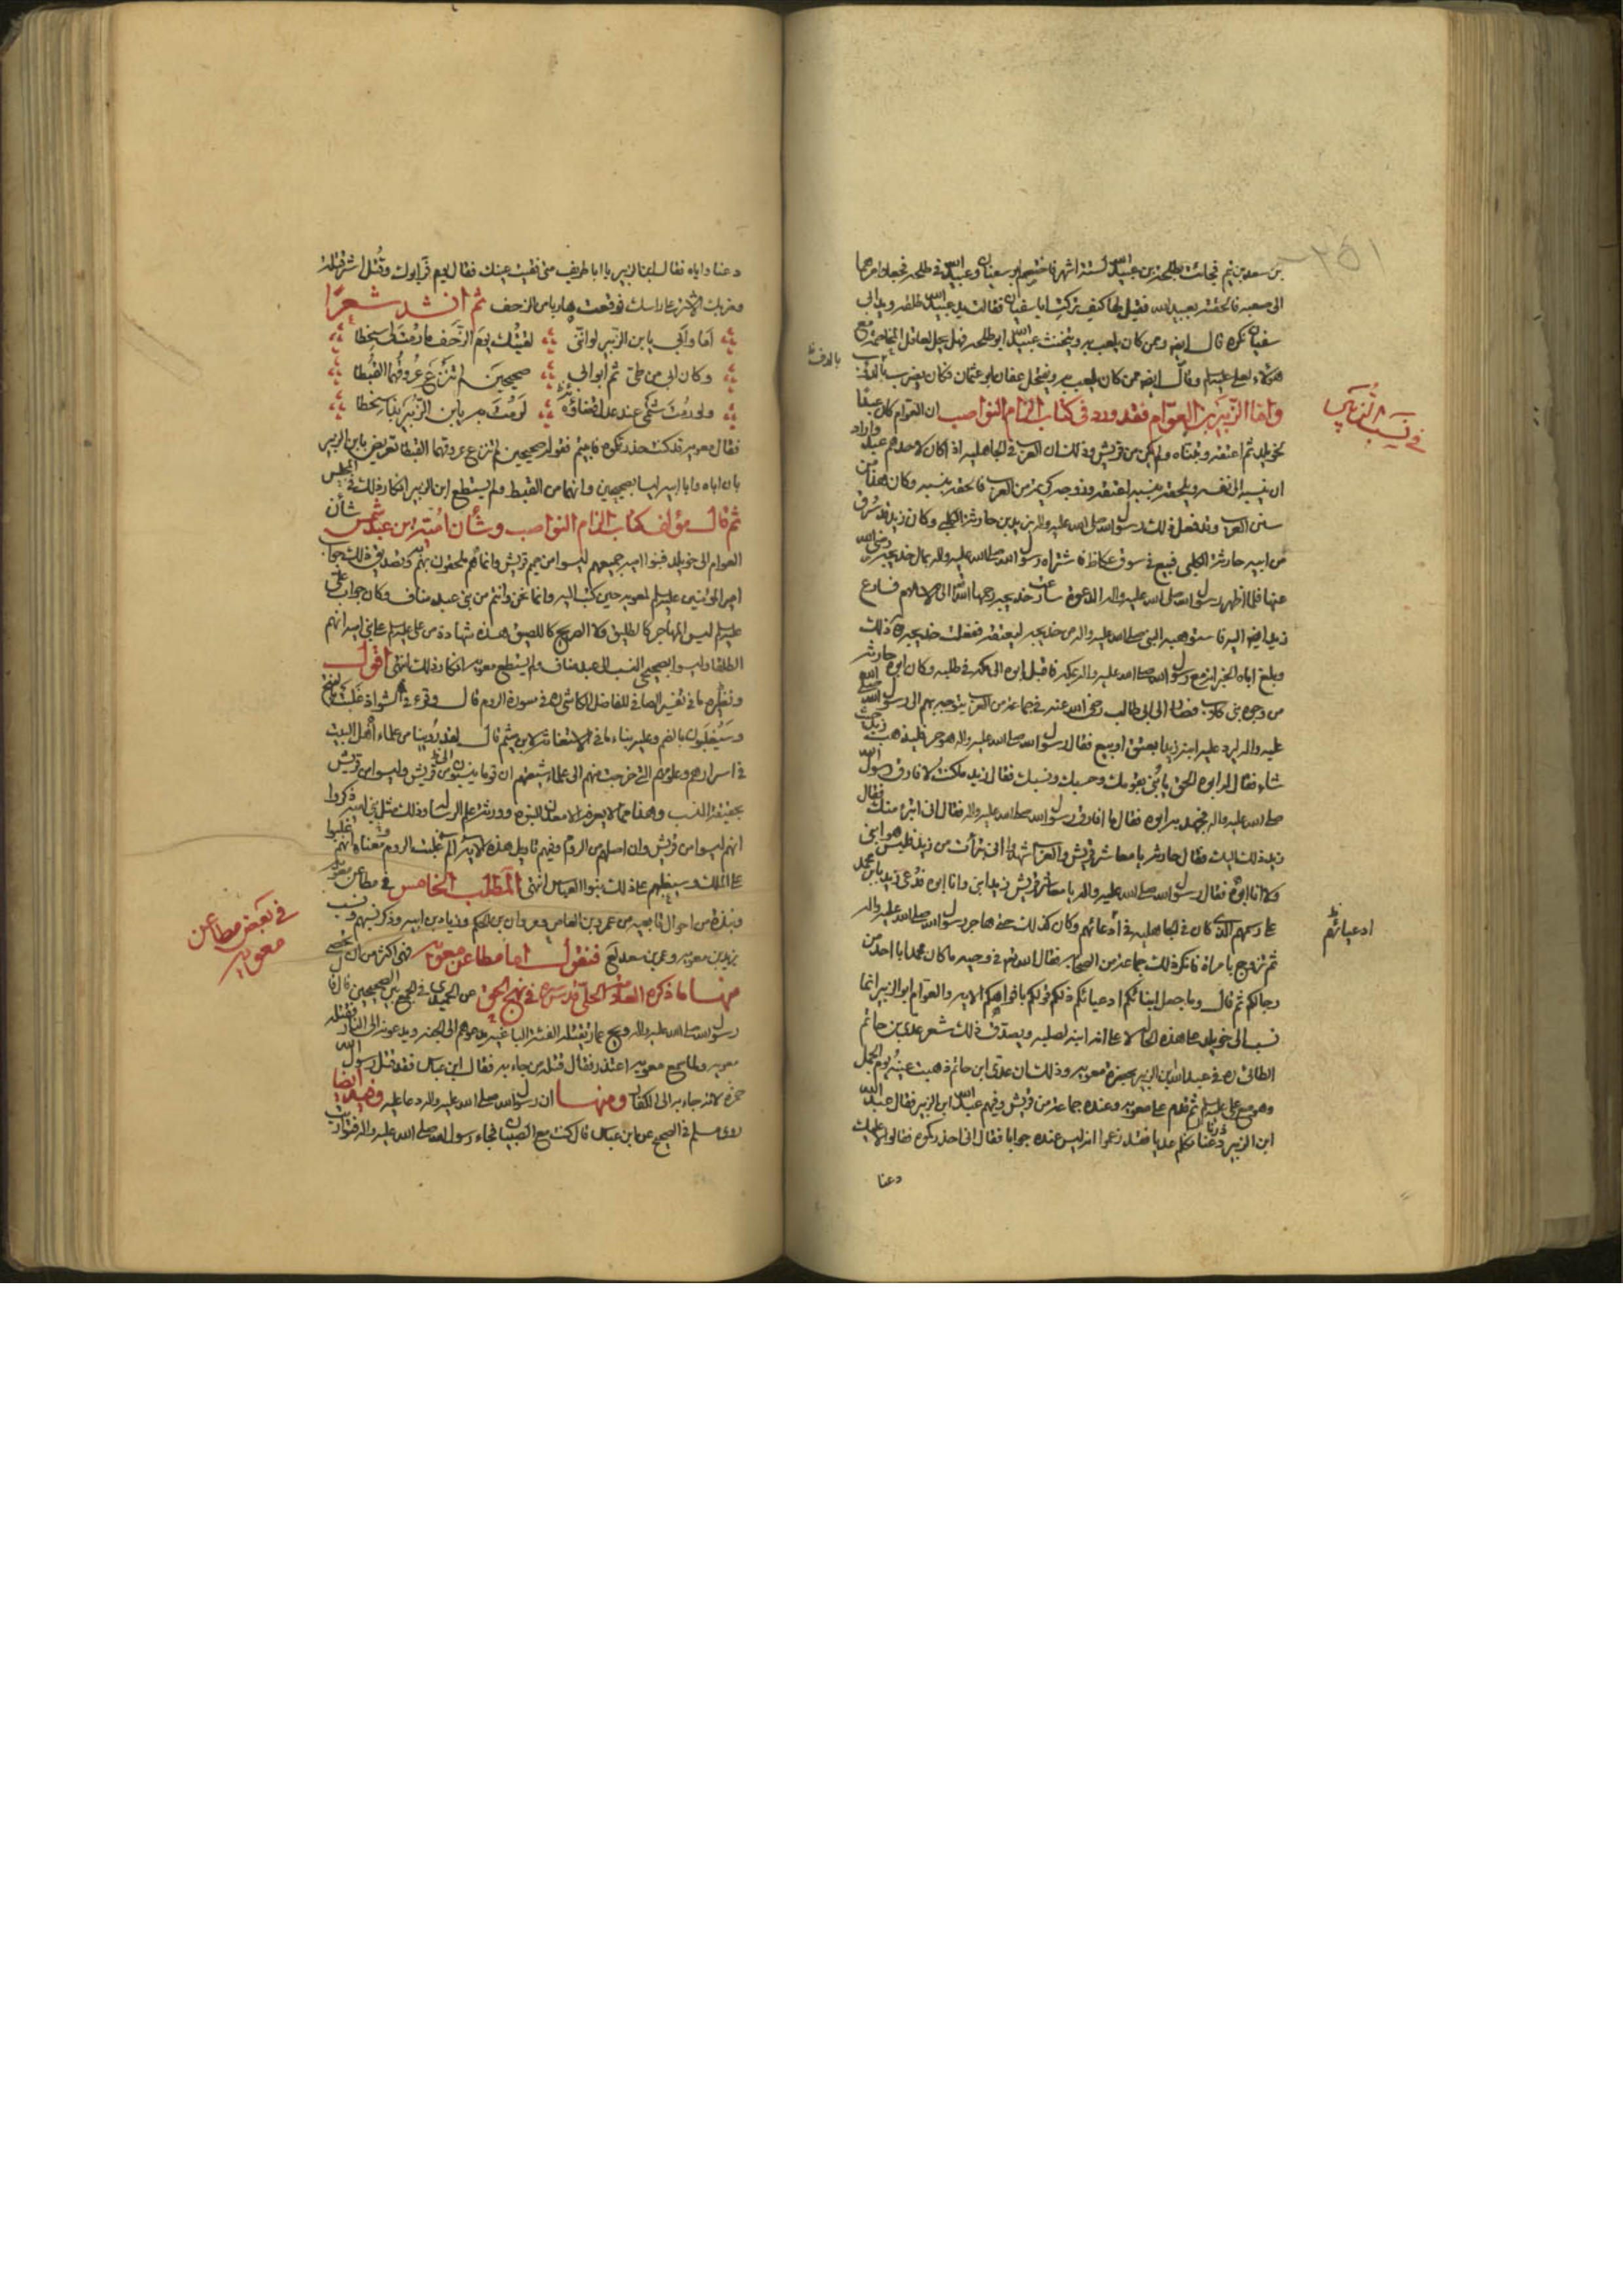 بن سعد بن تيم فجائت بطلحة بن عبيد الله لستة اشهر فاختصم ابو سفيان وعبيد الله في طلحة فجعلا امرهما
الى صعبة فالحقته بعبيد الله فقيل لها كيف تركت ابا سفيان فقالت يد عبيد الله طلقة ويد ابي
سفيان نكرة قال ايضا وممن كان يلعب به ويتخنث عبيد الله ابو طلحة فهل يحل لعاقل المخاصمة مع
هؤلاء لعلي عليه السلم وقال ايضا ممن كان يلعب به ويتخل عفان ابو عثمان فكان يضرب بالدف
بالدف
في نسب الزبير
واما الزبير بن العوام فقد ورد في كتاب الزام النواصب ان العوام كان عبدا
لخويلد ثم اعتقه وتبناه ولم يكن من قريش وذلك ان العرب في الجاهلية اذا كان لاحدهم عبد واراد
ان ينسبه الى نفسه ويلحقه بنسبه اعتقه وزوجه كريمة من العرب فالحقه بنسبه وكان هذا من
سنن العرب وقد فعل ذلك رسول الله صلى الله عليه واله بزيد بن حارثة الكلبي وكان زيد قد سرق
من ابيه حارثة الكلبي فبيع في سوق عكاظ فاشتراه رسول الله صلى الله عليه واله بمال خديجة رضي الله
عنها فلما اظهر رسول الله صلى الله عليه واله الدعوة سارعت خديجة رحمها الله الى الاسلام فسارع
زيد ايضا اليه فاستوهبه النبي صلى الله عليه واله من خديجة ليعتقه ففعلت خديجة ذلك
وبلغ اباه الخبر انه مع رسول الله صلى الله عليه واله بمكة فاقبل ابوه الى مكة في طلبه وكان ابوه حارثة
من وجوه بني كلاب فصار الى ابي طالب رضي الله عنه في جماعة من العرب يتوجه بهم الى رسول الله صلى الله
عليه واله ليرد عليه ابنه زيدا بعتق او ببيع فقال رسول الله صلى الله عليه واله هو حر فليذهب حيث
شاء فقال له ابوه الحق يا بني بقومك وحسبك ونسبك فقال زيد ما كنت لافارق رسول الله
صلى الله عليه واله فجهد به ابوه فقال ما افارق رسول الله صلى الله عليه واله فقال اني اتبرأ منك فقال
زيد ذلك اليك فقال حارثة يا معاشر قريش والعرب اشهدوا اني تبرأت من زيد فليس هو ابني
ولا انا ابوه فقال رسول الله صلى الله عليه واله يا معاشر قريش زيد ابني وانا ابوه فدعي زيد بابن محمد
على رسمهم الذي كان في الجاهلية في ادعائهم وكان كذلك حتى هاجر رسول الله صلى الله عليه واله
ادعيائهم
ثم تزوج بامراة فانكر ذلك جماعة من الصحابة فقال الله تعالى في وحيه ما كان محمد ابا احد من
رجالكم ثم قال وما جعل ابنائكم ادعيائكم ذلكم قولكم بافواهكم الاية والعوام ابو الزبير انما
نسب الى خويلد على هذه الحال لا على انه ابنه لصلبه ويصدق ذلك شعر عدي بن حاتم
الطائي ره في عبد الله بن الزبير بحضرة معوية وذلك ان عدي ابن حاتم ذهبت عينه يوم الجمل
وهو مع علي عليه السلم ثم قدم على معوية وعنده جماعة من قريش وفيهم عبد الله ابن الزبير فقال عبد الله
ابن الزبير دعنا نكلم عديا فقد زعموا انه ليس عنده جوابا فقال اني احذركموه فقالوا لا عليك
دعنا
دعنا واياه فقال ابن الزبير يا ابا طريف متى فقيت عينك فقال يوم فر ابوك وقتل اشر قتلة
وضربك الاشتر على راسك فوقعت هاربا من الزحف ثم انشد شعرا
اما وابي يا بن الزبير لو انني لقيتك يوم الزحف ما رمت لي سخطا
وكان ابي من طي ثم ابو ابي صحيحين لم تنزع عروقهما القبطا
ولو رمت شتمي عند عدل قضاؤه لرمت به يا بن الزبير بذا سخطا
فقال معوية قد كنت حذرتكموه فابيتم فقوله صحيحين لم تنزع عروقهما القبطا تعريض بابن الزبير
بان اباه وابا ابيه ليسا بصحيحين وانهما من القبط ولم يستطع ابن الزبير انكار ذلك في المجلس
ثم قال مؤلف كتاب الزام النواصب وشأن امية بن عبد شمس شأن
العوام الى خويلد فبنوا امية جميعهم ليسوا من صميم قريش وانما هم ملحقون بهم وتصديق ذلك جواب
امير المؤمنين عليه السلم لمعوية حين كتب اليه وانما نحن وانتم من بني عبد مناف وكان جواب علي
عليه السلم ليس المهاجر كالطليق ولا الصريح كاللصيق هذه شهادة من علي عليه السلم على بني امية انهم
الطلقا وليسوا بصحيحي النسب الى عبد مناف ولم يستطع معوية انكار ذلك انتهى اقول
ونظيره ما في تفسير الصافي للفاضل الكاشي ره في سورة الروم قال وقرء في الشواذ غلبت بالفتح
وسيغلبون بالضم وعليه بناء ما في الاستغاثة لابن ميثم قال لقد روينا من علماء اهل البيت
في اسرارهم وعلومهم التي خرجت منهم الى علماء شيعتهم ان قوما ينسبون الى قريش وليسوا من قريش
بحقيقة النسب وهذا مما لا يعرفه الا معدن النبوة وورثة علم الرسالة وذلك مثل بني امية ذكروا
انهم ليسوا من قريش وان اصلهم من الروم وفيهم تاويل هذه الاية الم غلبت الروم ومعناه انهم غلبوا
على الملك وسيغلبهم على ذلك بنوا العباس انتهى المطلب الخامس في مطاعن معوية
ونبذة من احوال تابعيه من عمرو بن العاص ومروان بن الحكم وزياد بن ابيه وذكر نسبهم ونسب
في بعض مطاعن
معوية
يزيد بن معوية وعمر بن سعد لع فنقول اما مطاعن معوية فهي اكثر من ان تحصى
منها ما ذكره العلامة الحلي قدس سره في نهج الحق عن الحميدي في الجمع بين الصحيحين قال قال
رسول الله صلى الله عليه واله ويح عمار تقتله الفئة الباغية يدعوهم الى الجنة ويدعونه الى النار فقتله
معوية ولما سمع معوية اعتذر فقال قتله من جاء به فقال ابن عباس فقد قتل رسول الله
حمزة لانه جاء به الى الكفار ومنها ان رسول الله صلى الله عليه واله دعا عليه وفيه ايضا
روى مسلم في الصحيح عن ابن عباس قال كنت مع الصبيان فجاء رسول الله صلى الله عليه واله فتواريت